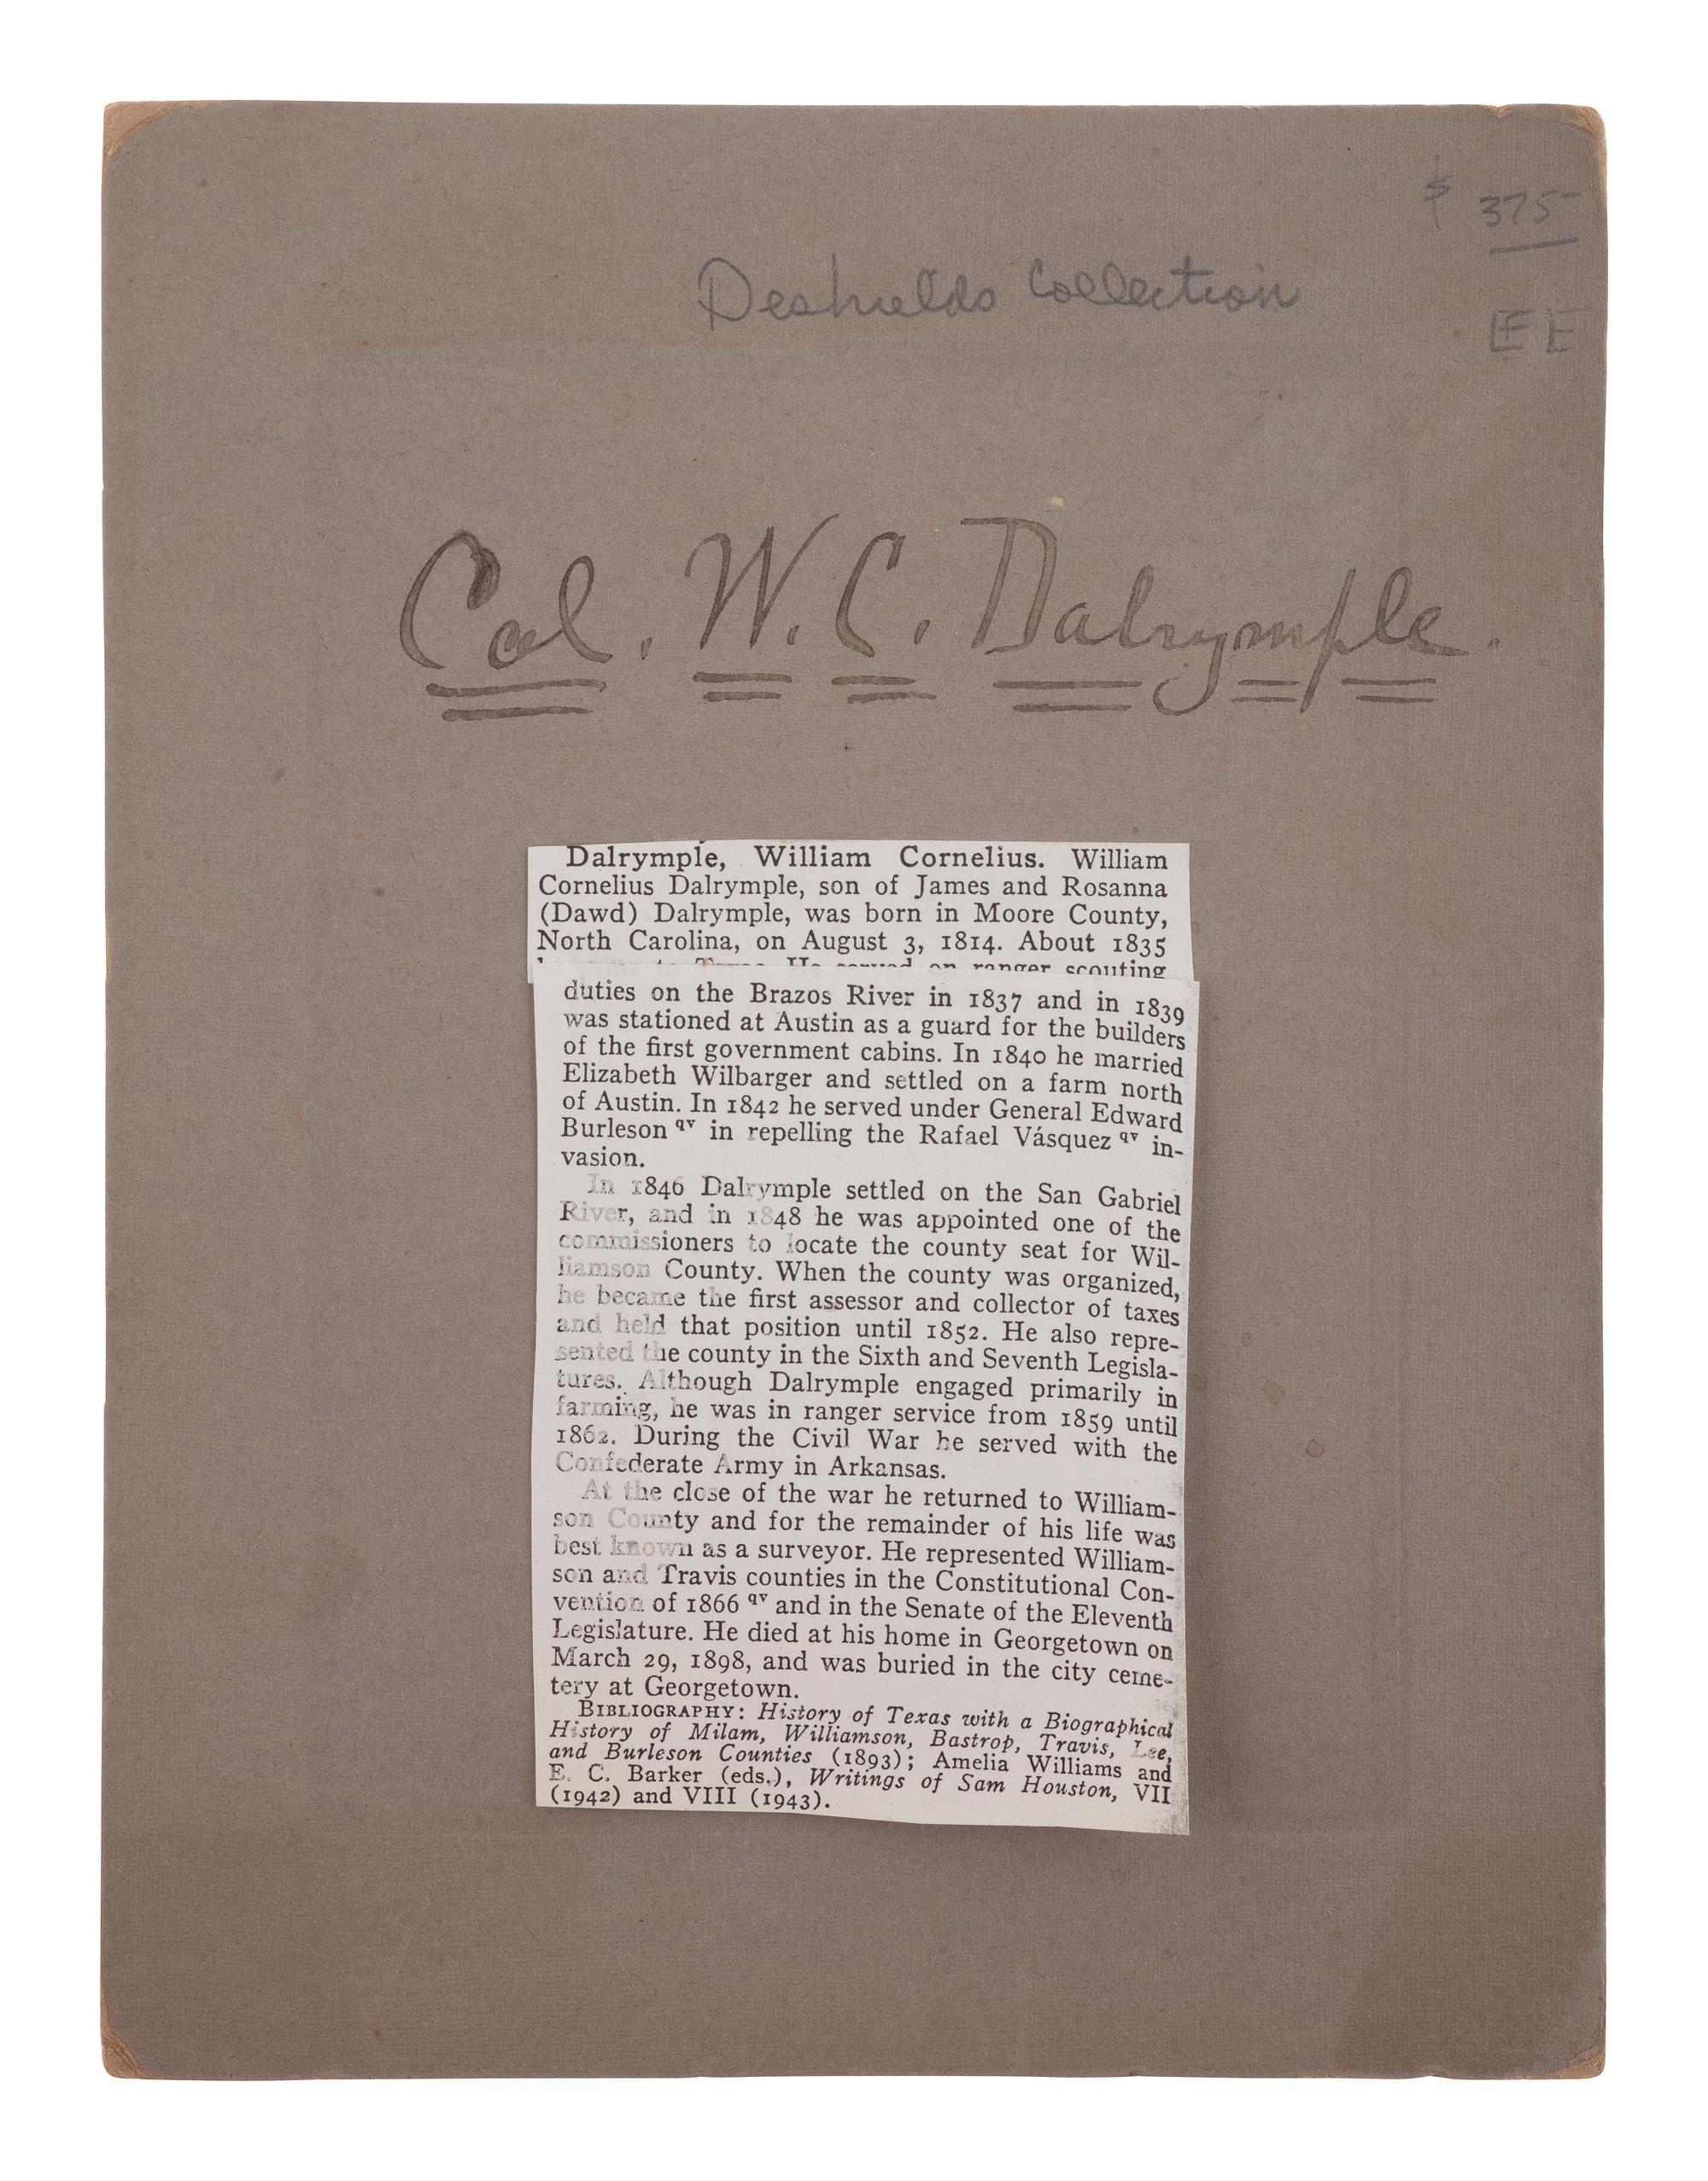 $ 375
Deshields Collection
EE
Col. W. C. Dalrymple.
Dalrymple, William Cornelius. William
Cornelius Dalrymple, son of James and Rosanna
(Dawd) Dalrymple, was born in Moore County,
North Carolina, on August 3, 1814. About 1835
to Texas. He served on ranger scouting
duties on the Brazos River in 1837 and in 1839
was stationed at Austin as a guard for the builders
of the first government cabins. In 1840 he married
Elizabeth Wilbarger and settled on a farm north
of Austin. In 1842 he served under General Edward
Burleson qv in repelling the Rafael Vásquez qv in-
vasion.
In 1846 Dalrymple settled on the San Gabriel
River, and in 1848 he was appointed one of the
commissioners to locate the county seat for Wil-
liamson County. When the county was organized,
he became the first assessor and collector of taxes
and held that position until 1852. He also repre-
sented the county in the Sixth and Seventh Legisla-
tures. Although Dalrymple engaged primarily in
farming, he was in ranger service from 1859 until
1862. During the Civil War he served with the
Confederate Army in Arkansas.
At the close of the war he returned to William-
son County and for the remainder of his life was
best known as a surveyor. He represented William-
son and Travis counties in the Constitutional Con-
vention of 1866 qv and in the Senate of the Eleventh
Legislature. He died at his home in Georgetown on
March 29, 1898, and was buried in the city ceme-
tery at Georgetown.
BIBLIOGRAPHY: History of Texas with a Biographical
History of Milam, Williamson, Bastrop, Travis, Lee,
and Burleson Counties (1893); Amelia Williams and
E. C. Barker (eds.), Writings of Sam Houston, VII
(1942) and VIII (1943).